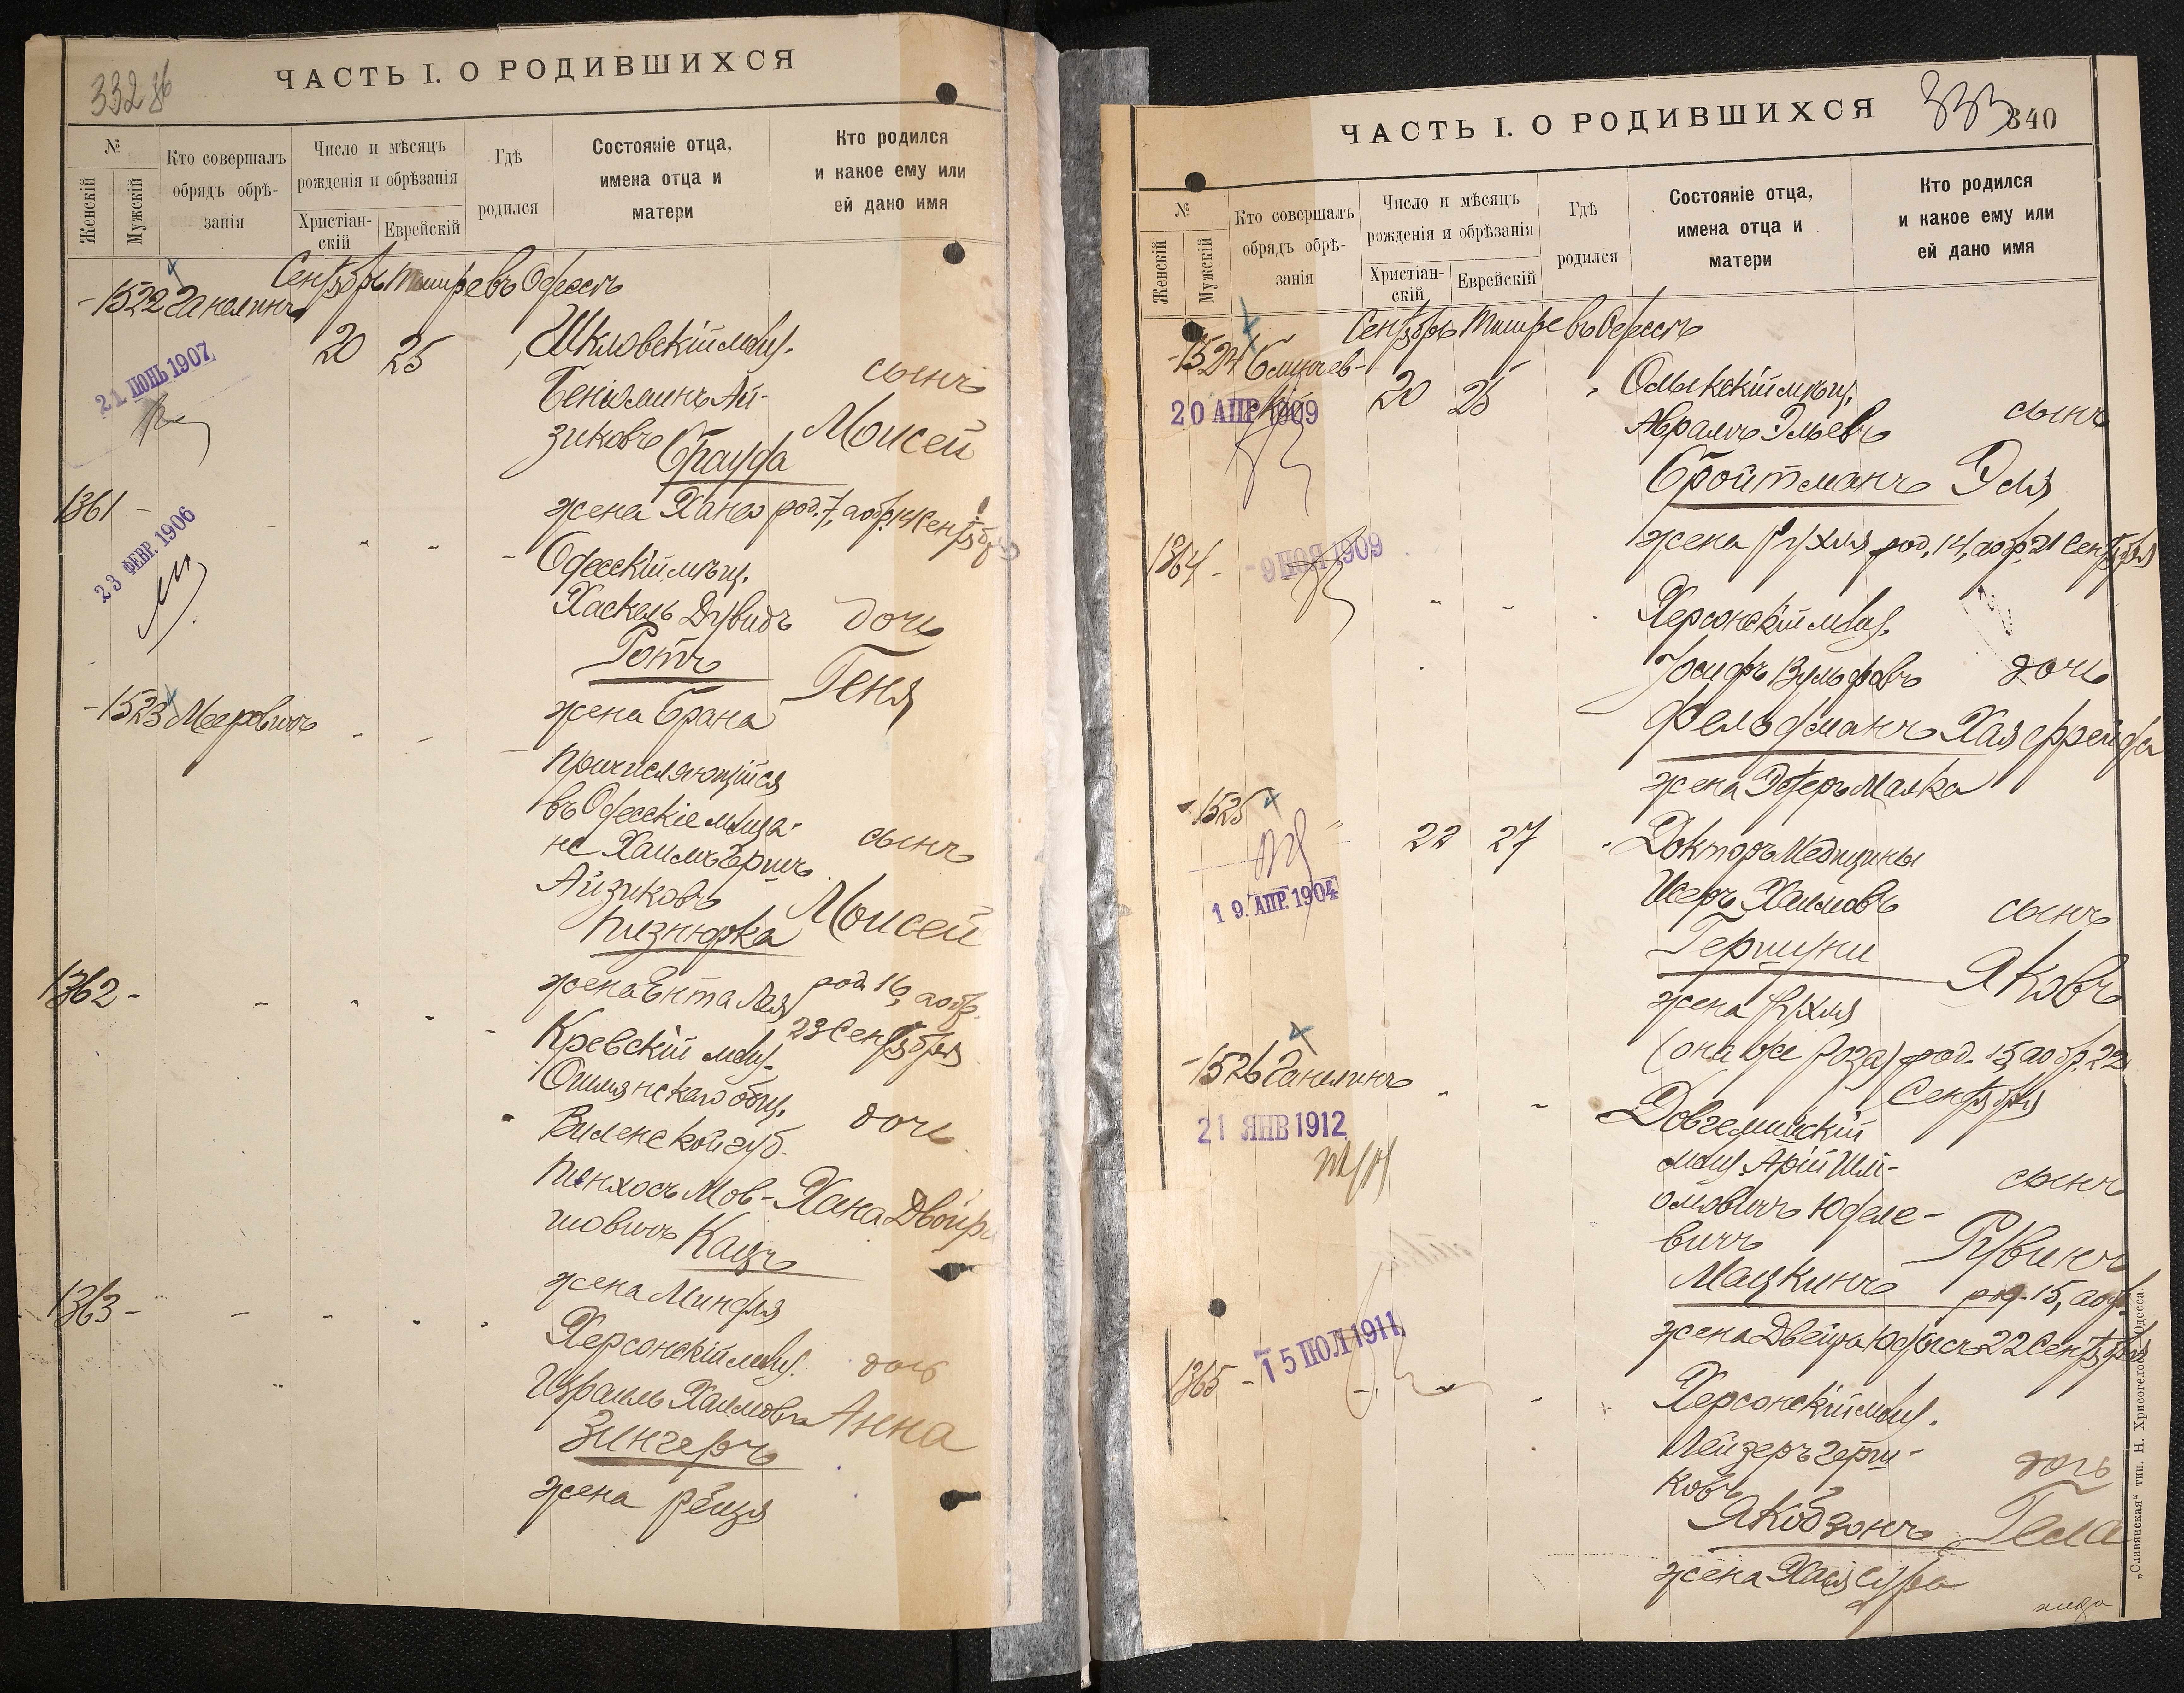 332 об
ЧАСТЬ I. О РОДИВШИХСЯ
№
Женскій
Мужскій
Кто совершалъ
обрядъ обрѣ-
занія
Число и мѣсяцъ
рожденія и обрѣзанія
Христіан-
скій
Еврейскій
Гдѣ
родился
Состояніе отца,
имена отца и
матери
Кто родился
и какое ему или
ей дано имя
Сентябрь Тишре въ Одессѣ
1522 Ганелинъ
20 25
Шкловскій мѣщ.
Беніаминъ Ай-
зиковъ Брауда
жена Хана
сынъ
Моисей
род. 7, а обр. 14 Сентября
21 ІЮНЬ 1907
1361
23 ФЕВР. 1906
Одесскій мѣщ.
Хаскель Дувидъ
Ротъ
жена Брана
дочь
Геня
1523 Мееровичъ
причисляющійся
въ Одесскіе мѣща-
не Хаимъ Гершъ
Айзиковъ
Пизнюрка
жена Ента Лея
сынъ
Моисей
род 16, а обр.
23 Сентября
1362
Кревскій мѣщ.
Ошмянскаго общ.
Виленской губ.
Пинхосъ Мов-
шовичъ Кацъ
жена Миндля
дочь
Хана Двойра
1363
Херсонскій мѣщ.
Израиль Хаимовъ
Зингеръ
жена Рейзя
дочь
Анна
333
340
ЧАСТЬ I. О РОДИВШИХСЯ
№
Женскій
Мужскій
Кто совершалъ
обрядъ обрѣ-
занія
Число и мѣсяцъ
рожденія и обрѣзанія
Христіан-
скій
Еврейскій
Гдѣ
родился
Состояніе отца,
имена отца и
матери
Кто родился
и какое ему или
ей дано имя
Сентябрь Тишре въ Одессѣ
1524
20 АПР 1909
20 25
Олыкскій мѣщ.
Абрамъ Эльевъ
Бройтманъ
жена Рухля
сынъ
Эля
род. 14, а обр. 21 Сентября
1364
9 НОЯ 1909
Херсонскій мѣщ.
Іосифъ Вульфовъ
Фельдманъ
жена Эстеръ Малка
дочь
Хая Фрейда
1525
19. АПР. 1904
22 27
Докторъ Медицины
Исеръ Хаимовъ
Гершуни
жена Рухля
(она же Роза)
сынъ
Яковъ
род. 15 а обр. 22
Сентября
1526 Ганелинъ
21 ЯНВ 1912
мѣщ. Арій Шлі-
омовичъ Юделе-
вичъ
Мацкинъ
жена Двейра Юдысъ
сынъ
Рувинъ
род. 15, а обр.
22 Сентября
1365
15 ІЮЛ 1911
Херсонскій мѣщ.
Лейзеръ Герш-
ковъ
Якобзонъ
жена Хая Сура
дочь
„Славянская“ тип. Н. Хрисогелосъ, Одесса.